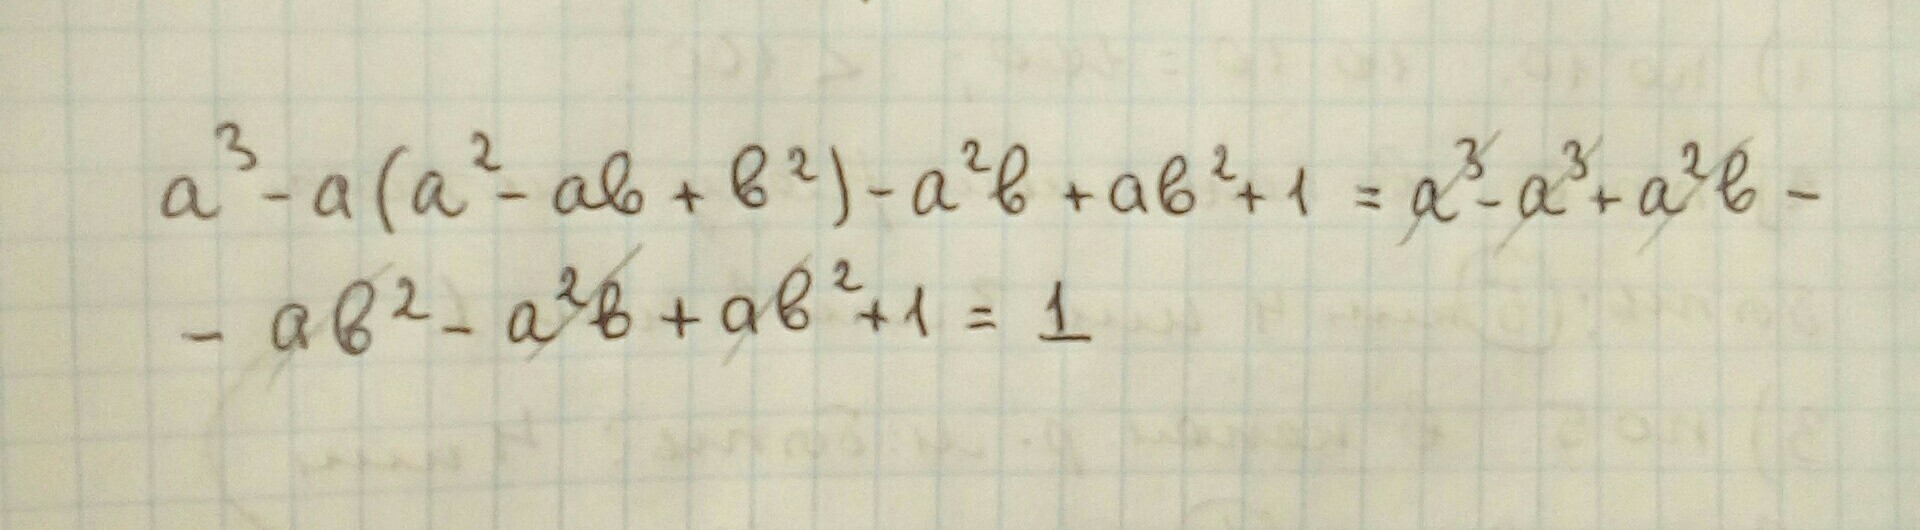 a³ - a(a² - ab + b²) - a²b + ab² + 1 = a³ - a³ + a²b -
- ab² - a²b + ab² + 1 = 1